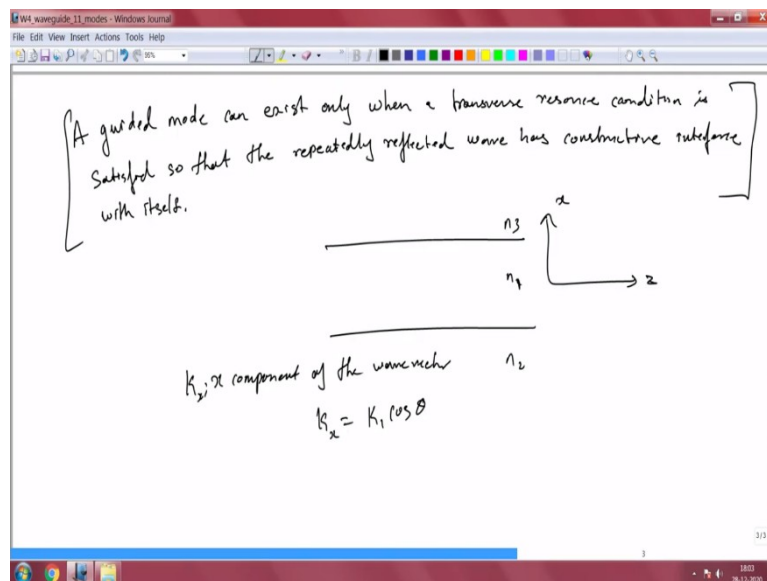 W4_waveguide_11_modes - Windows Journal
File Edit View Insert Actions Tools Help
98%
A guided mode can exist only when a transverse resonce condition is
Satisfied so that the repeatedly reflected wave has constructive interfance
with itself.
n3
x
n1
z
n2
Kx; x component of the wavevector
Kx = K1 cos θ
3/3
3
18:03
28-12-2020